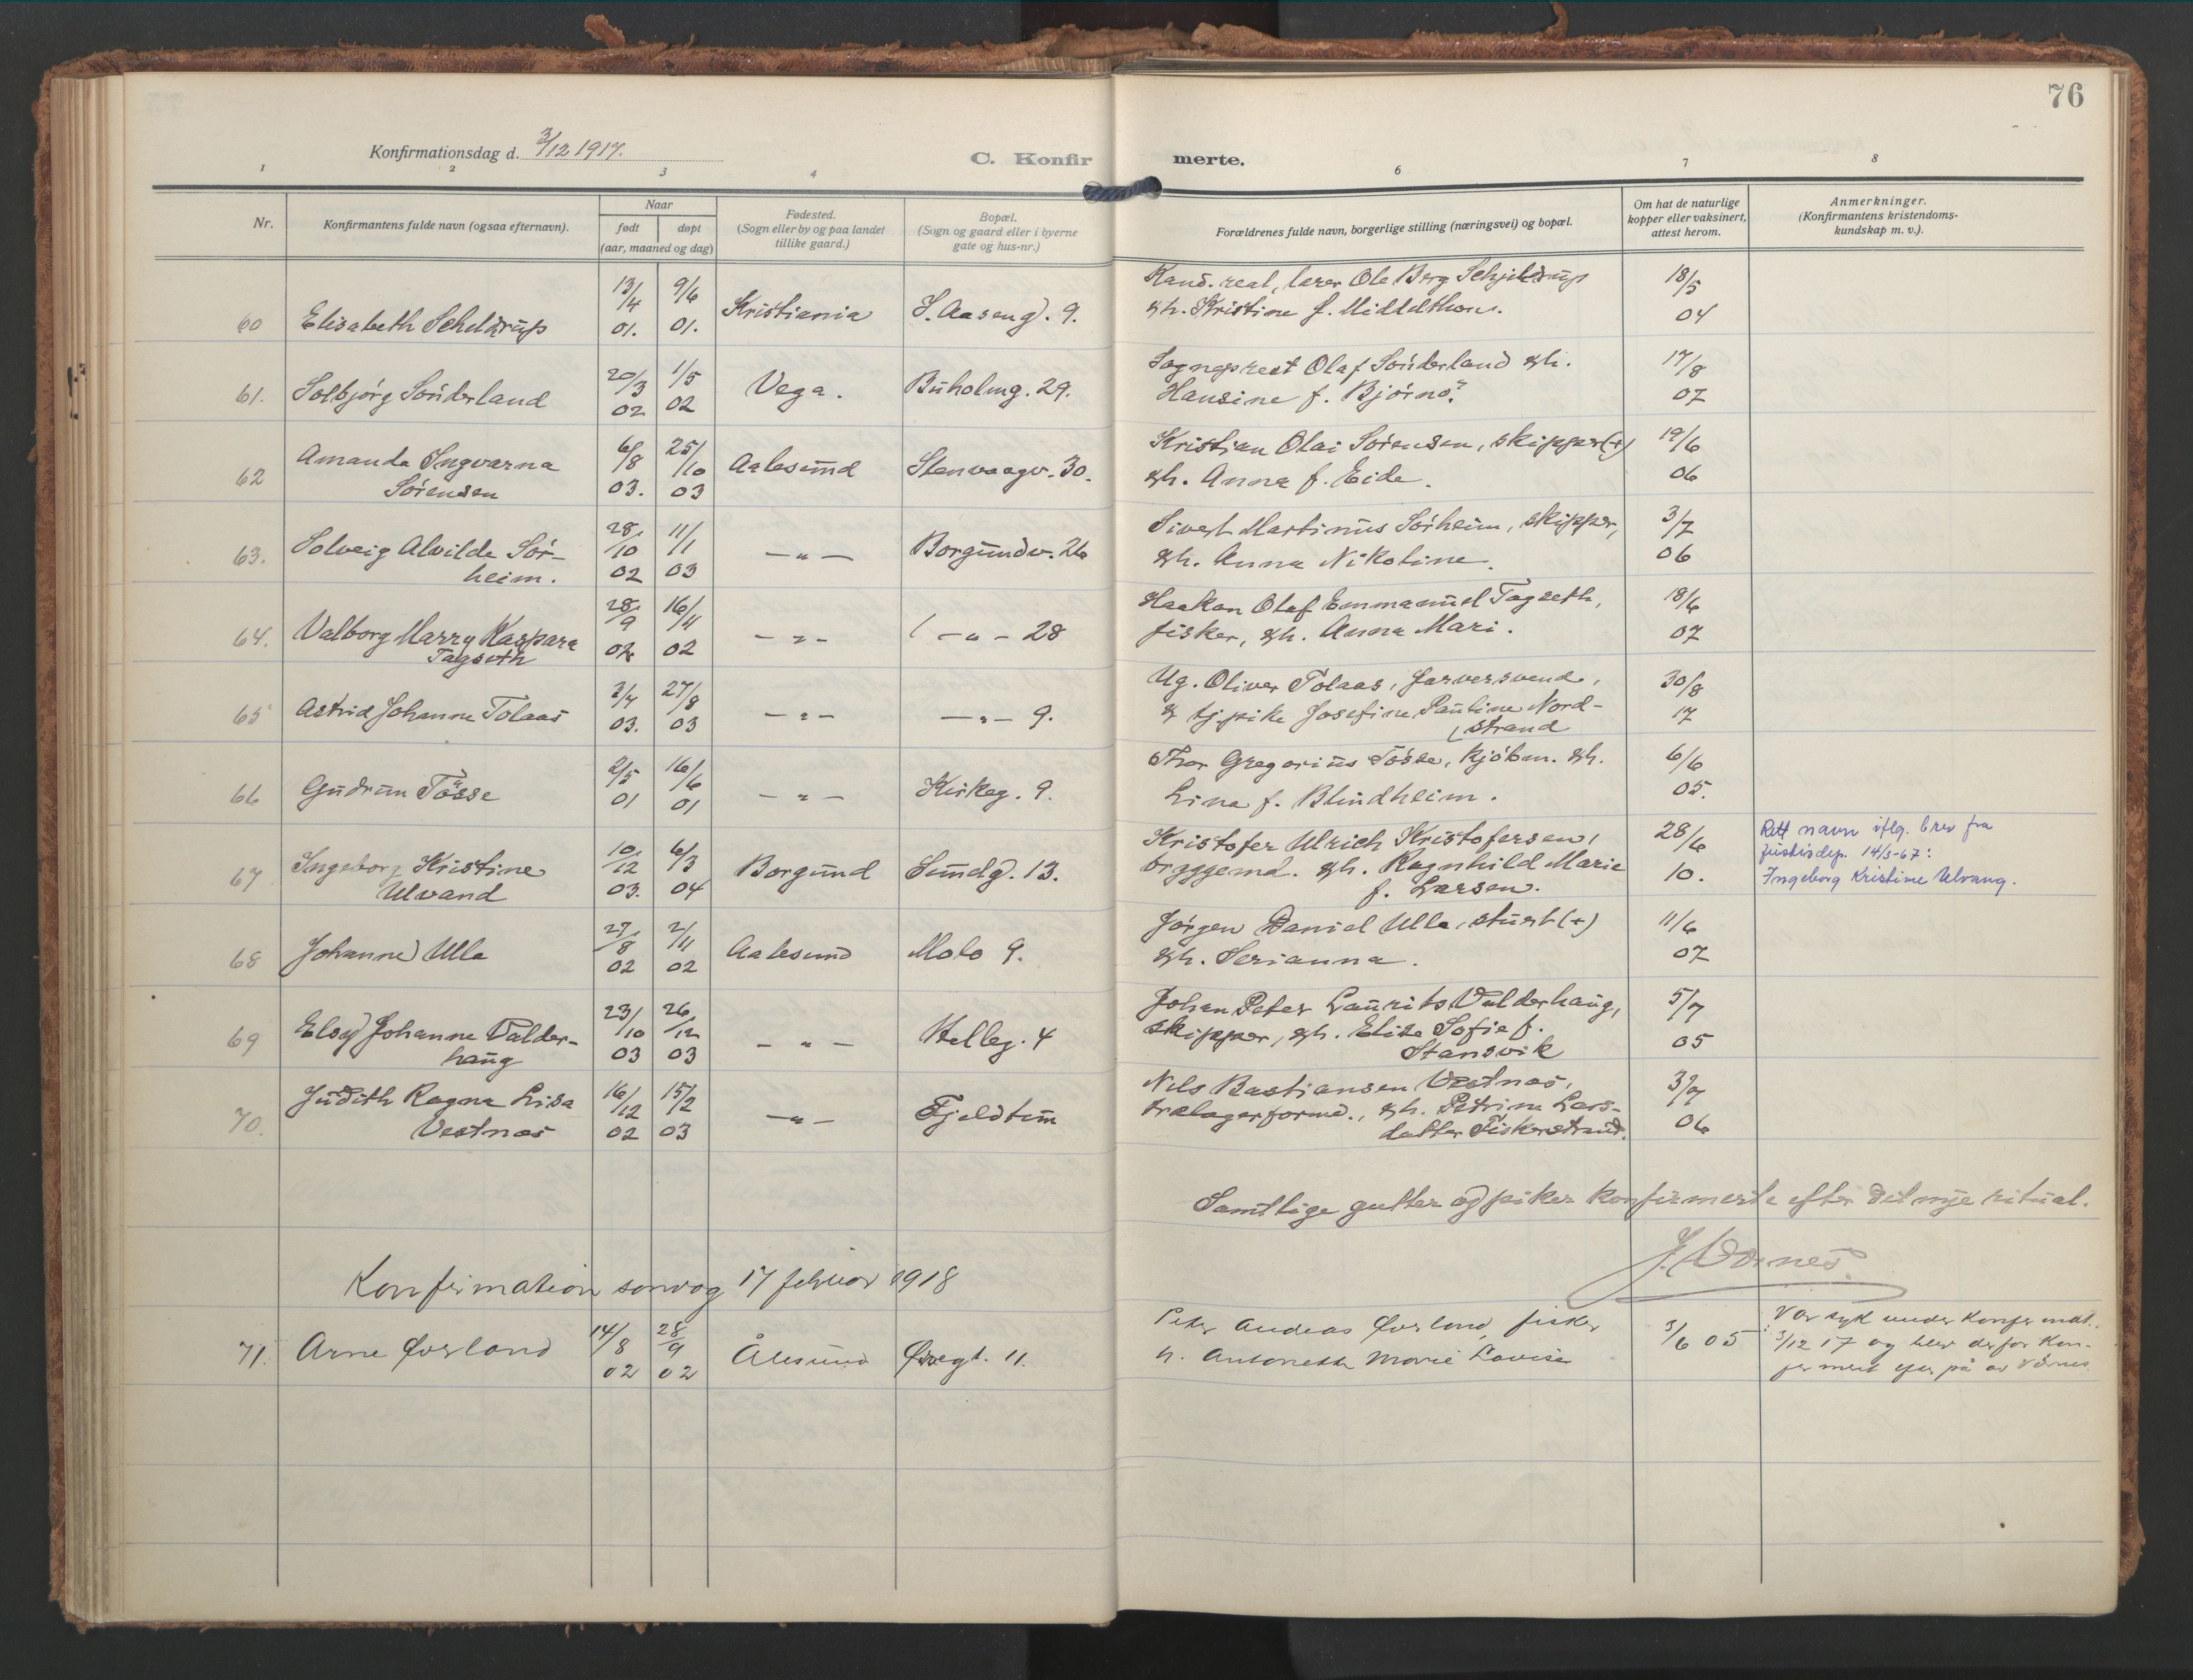 76
Konfirmationsdag d. 3/12 1917.
C. Konfir merte.
1 2 3 4 6 7 8
Nr.
Konfirmantens fulde navn (ogsaa efternavn).
Naar
født
døpt
(aar, maaned og dag)
Fødested.
(Sogn eller by og paa landet
tillike gaard.)
Bopæl.
(Sogn og gaard eller i byerne
gate og hus-nr.)
Forældrenes fulde navn, borgerlige stilling (næringsvei) og bopæl.
Om hat de naturlige
kopper eller vaksinert,
attest herom.
Anmerkninger.
(Konfirmantens kristendoms-
kundskap m. v.).
60 Elisabeth Scheldrup 13/4 01. 9/6 01. Kristiania I. Aaseng. 9.
Kand. real, lærer Ole Berg Schjeldrup
& h. Kristine f. Middelthon.
18/5 04
61. Solbjørg Sønderland 20/3 02 1/5 02 Vega. Buholmg. 29.
Sogneprest Olaf Sønderland & h.
Hansine f. Bjørnø.
17/8 07
62 Amanda Ingvarna
Sørensen
6/8 03. 25/10 03 Aalesund Stenvaagv. 30.
Kristian Olai Sørensen, skipper (+)
& h. Anna f. Eide.
19/6 06
63. Solveig Alvilde Sør-
heim.
28/10 02 11/1 03 - " - Borgundv. 26
Sivert Martinus Sørheim, skipper,
& h. Anna Nikoline.
3/7 06
64. Valborg Marry Kaspara
Tagseth
28/9 02 16/11 02 - " - - " - 28
Haakon Olaf Emmanuel Tagseth,
fisker, & h. Anna Mari.
18/6 07
65 Astrid Johanne Tolaas 3/7 03. 27/8 03 - " - - " - 9.
Ug. Oliver Tolaas, farversvend,
& tj.pike Josefine Pauline Nord-
strand
30/8 17
66 Gudrun Tøsse 2/5 01 16/6 01 - " - Kirkeg. 9.
Thor Gregorius Tøsse, kjøbm. & h.
Lina f. Blindheim.
6/6 05.
67 Ingeborg Kristine
Ulvand
10/12 03. 6/3 04 Borgund Sundg. 13.
Kristofer Ulrich Kristofersen,
bryggemd. & h. Ragnhild Marie
f. Larsen.
28/6 10.
Rett navn iflg. brev fra
Justisdep. 14/3-67:
Ingeborg Kristine Ulvang.
68 Johanne Ulla 27/8 02 2/11 02 Aalesund Molo 9.
Jørgen Daniel Ulla, stuert (+)
& h. Serianna.
11/6 07
69 Elsy Johanne Valder-
haug
23/10 03 26/12 03 - " - Helleg. 4
Johan Peter Laurits Valderhaug,
skipper, & h. Elise Sofie f.
Stansvik
5/7 05
70. Judith Ragna Lisa
Vestnæs
16/12 02 15/2 03 - " - Fjeldtun
Nils Bastiansen Vestnæs,
trælagerformd., & h. Petrine Lars-
datter Fiskerstrand.
3/7 06
Samtlige gutter og piker konfirmerte efter det nye ritual.
J. Vornes
Konfirmation søndag 17 februar 1918
71. Arne Øvsland 14/8 02 28/9 02 Ålesund Øvregt. 11.
Peter Andreas Øvsland, fisker
h. Antonette Marie Lovise
3/6 05
Var syk under konfirmat.
3/12 17 og blev derfor kon-